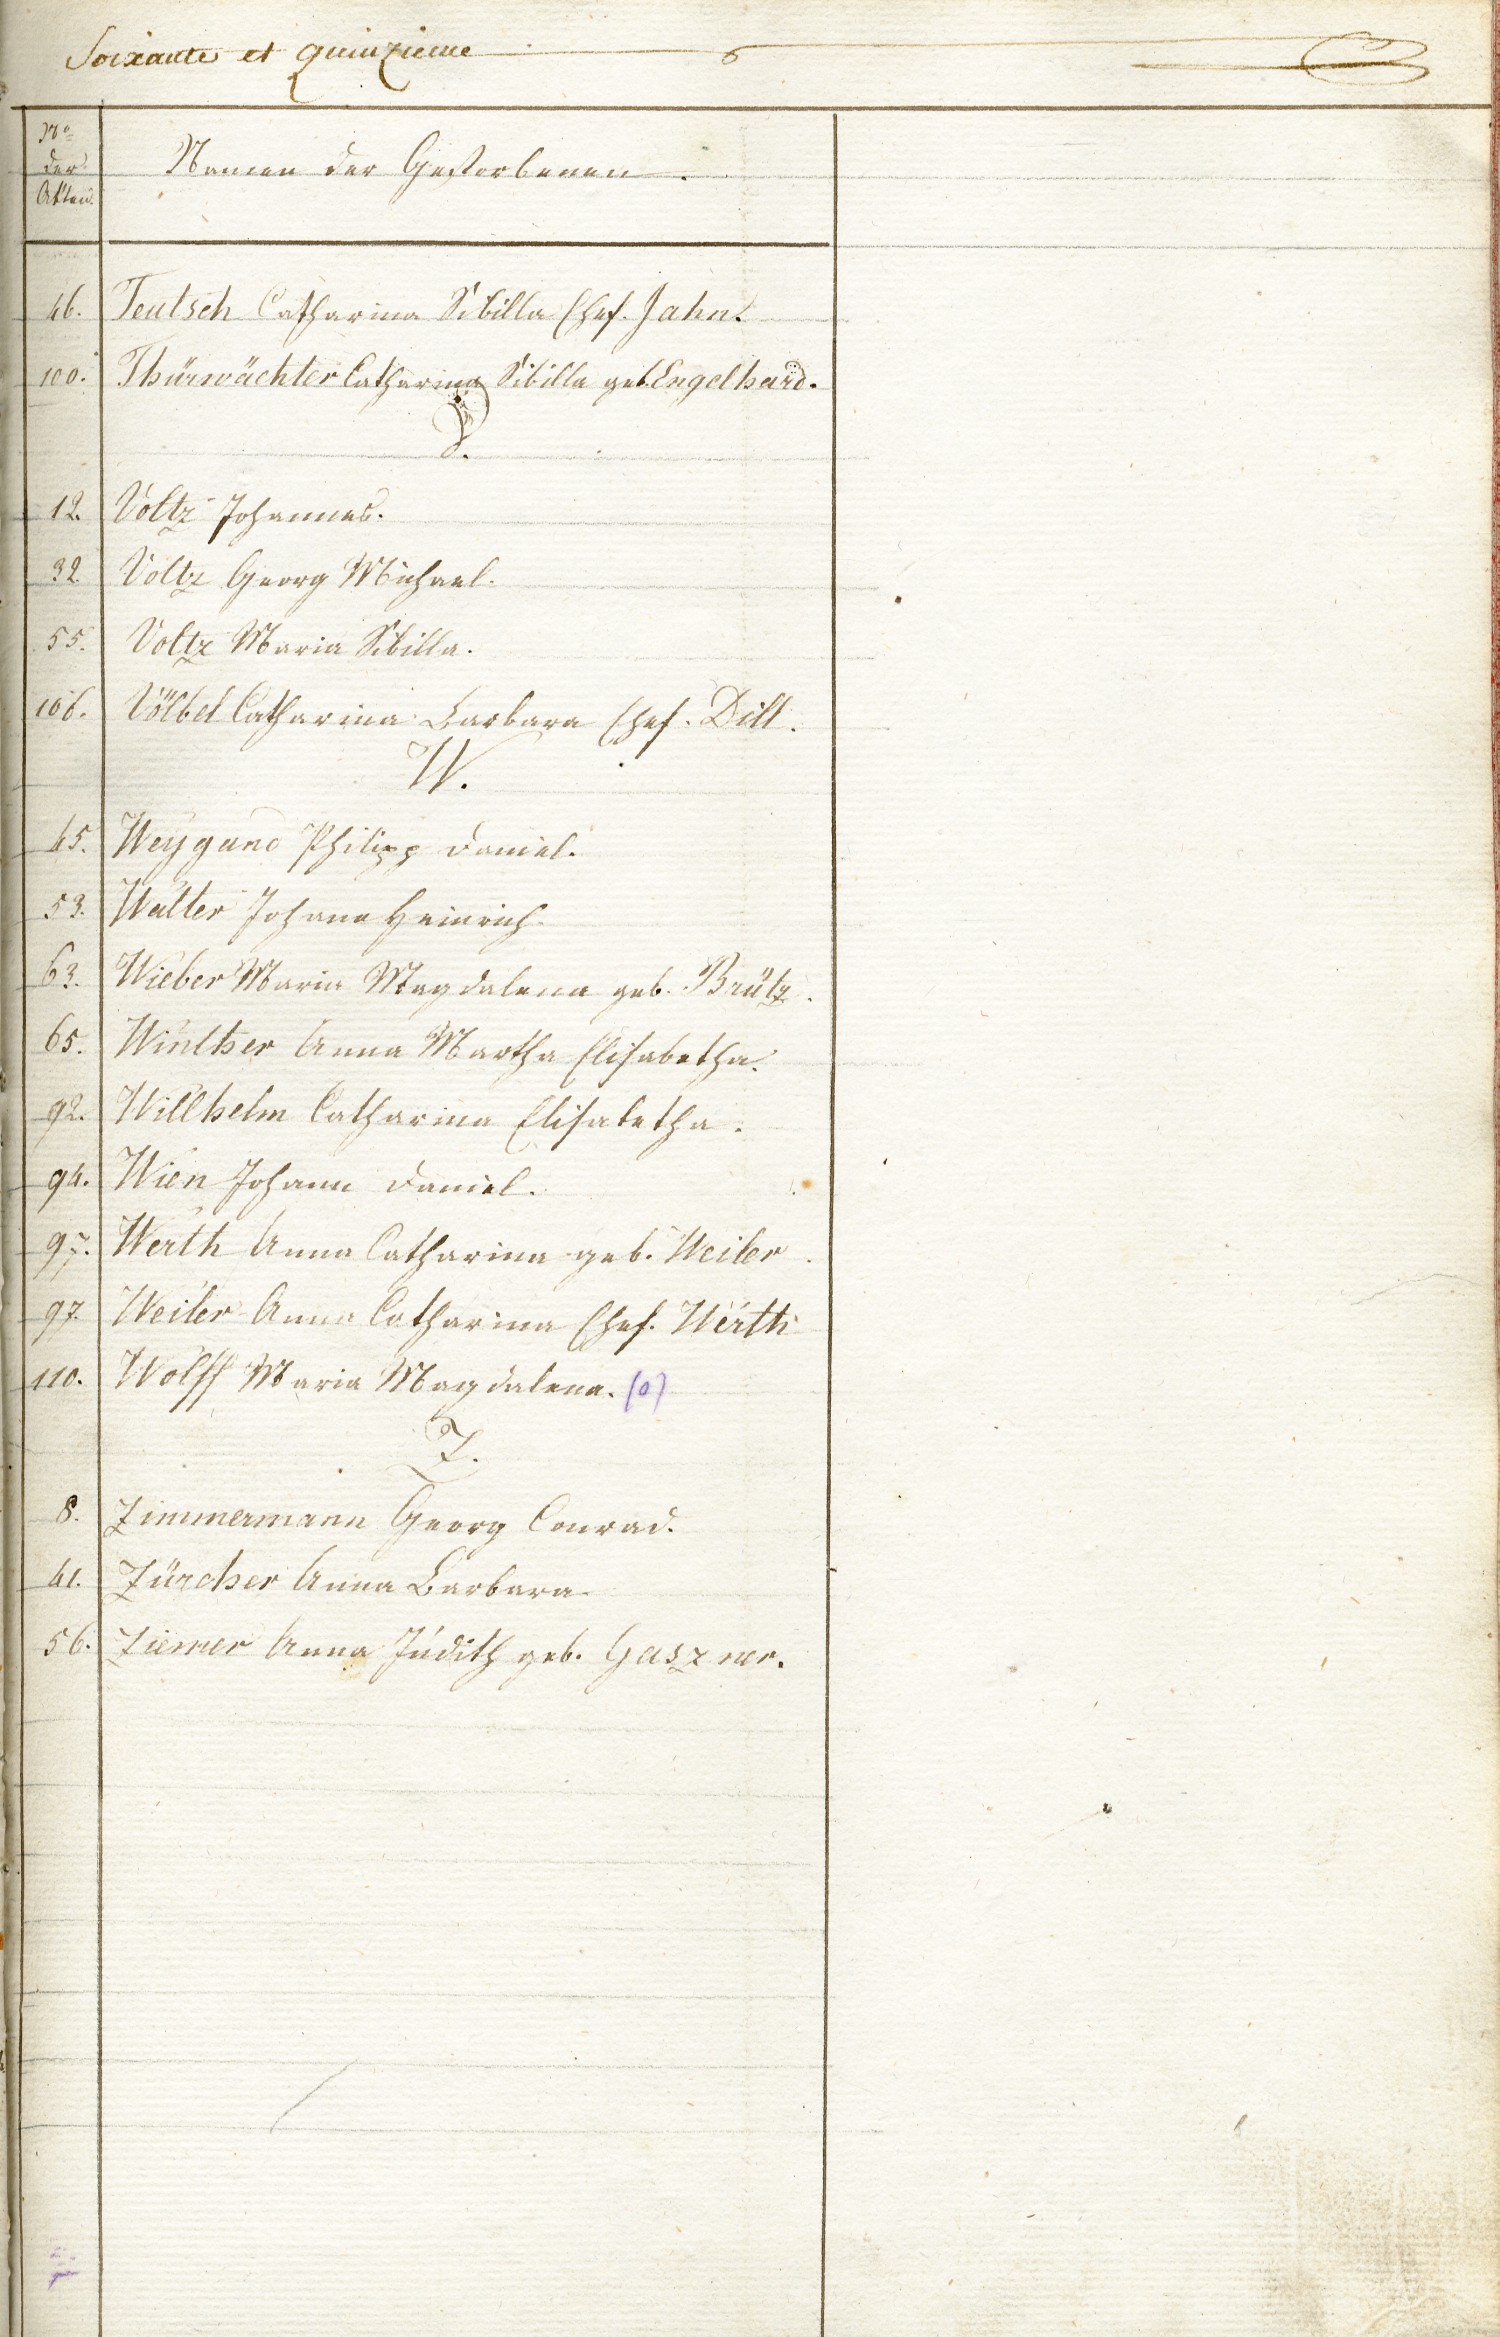 Soixante et Quinzieme
No
der
Akten.
Namen der Gestorbenen.
46. Teutsch Catharina Sibilla Ehef. Jahn.
100. Thürwächter Catharina Sibilla geb. Engelhard.
V.
12. Voltz Johannes.
32. Voltz Georg Michael.
55. Voltz Maria Sibilla.
106. Völbel Catharina Barbara Ehef. Dill.
W.
45. Weygand Philipp Daniel.
53. Walter Johann Heinrich.
63. Wieber Maria Magdalena geb. Brütz.
65. Winther Anna Martha Elisabetha.
92. Willhelm Catharina Elisabetha.
94. Wien Johann Daniel.
97. Werth Anna Catharina geb. Weiler.
97. Weiler Anna Catharina Ehef. Werth
110. Wolff Maria Magdalena. (o)
Z.
8. Zimmermann Georg Conrad.
41. Zürcher Anna Barbara.
56. Ziemer Anna Judith geb. Gaszner.